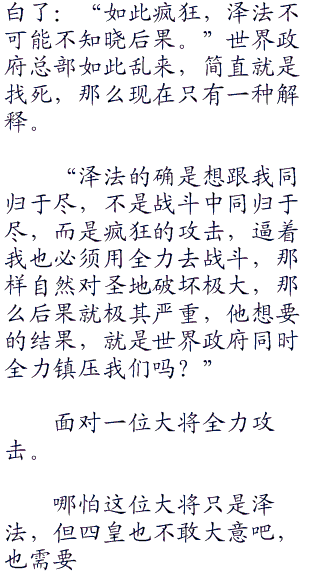 白了：“如此疯狂，泽法不
可能不知晓后果。”世界政
府总部如此乱来，简直就是
找死，那么现在只有一种解
释。
“泽法的确是想跟我同
归于尽，不是战斗中同归于
尽，而是疯狂的攻击，逼着
我也必须用全力去战斗，那
样自然对圣地破坏极大，那
么后果就极其严重，他想要
的结果，就是世界政府同时
全力镇压我们吗？”
面对一位大将全力攻
击。
哪怕这位大将只是泽
法，但四皇也不敢大意吧，
也需要